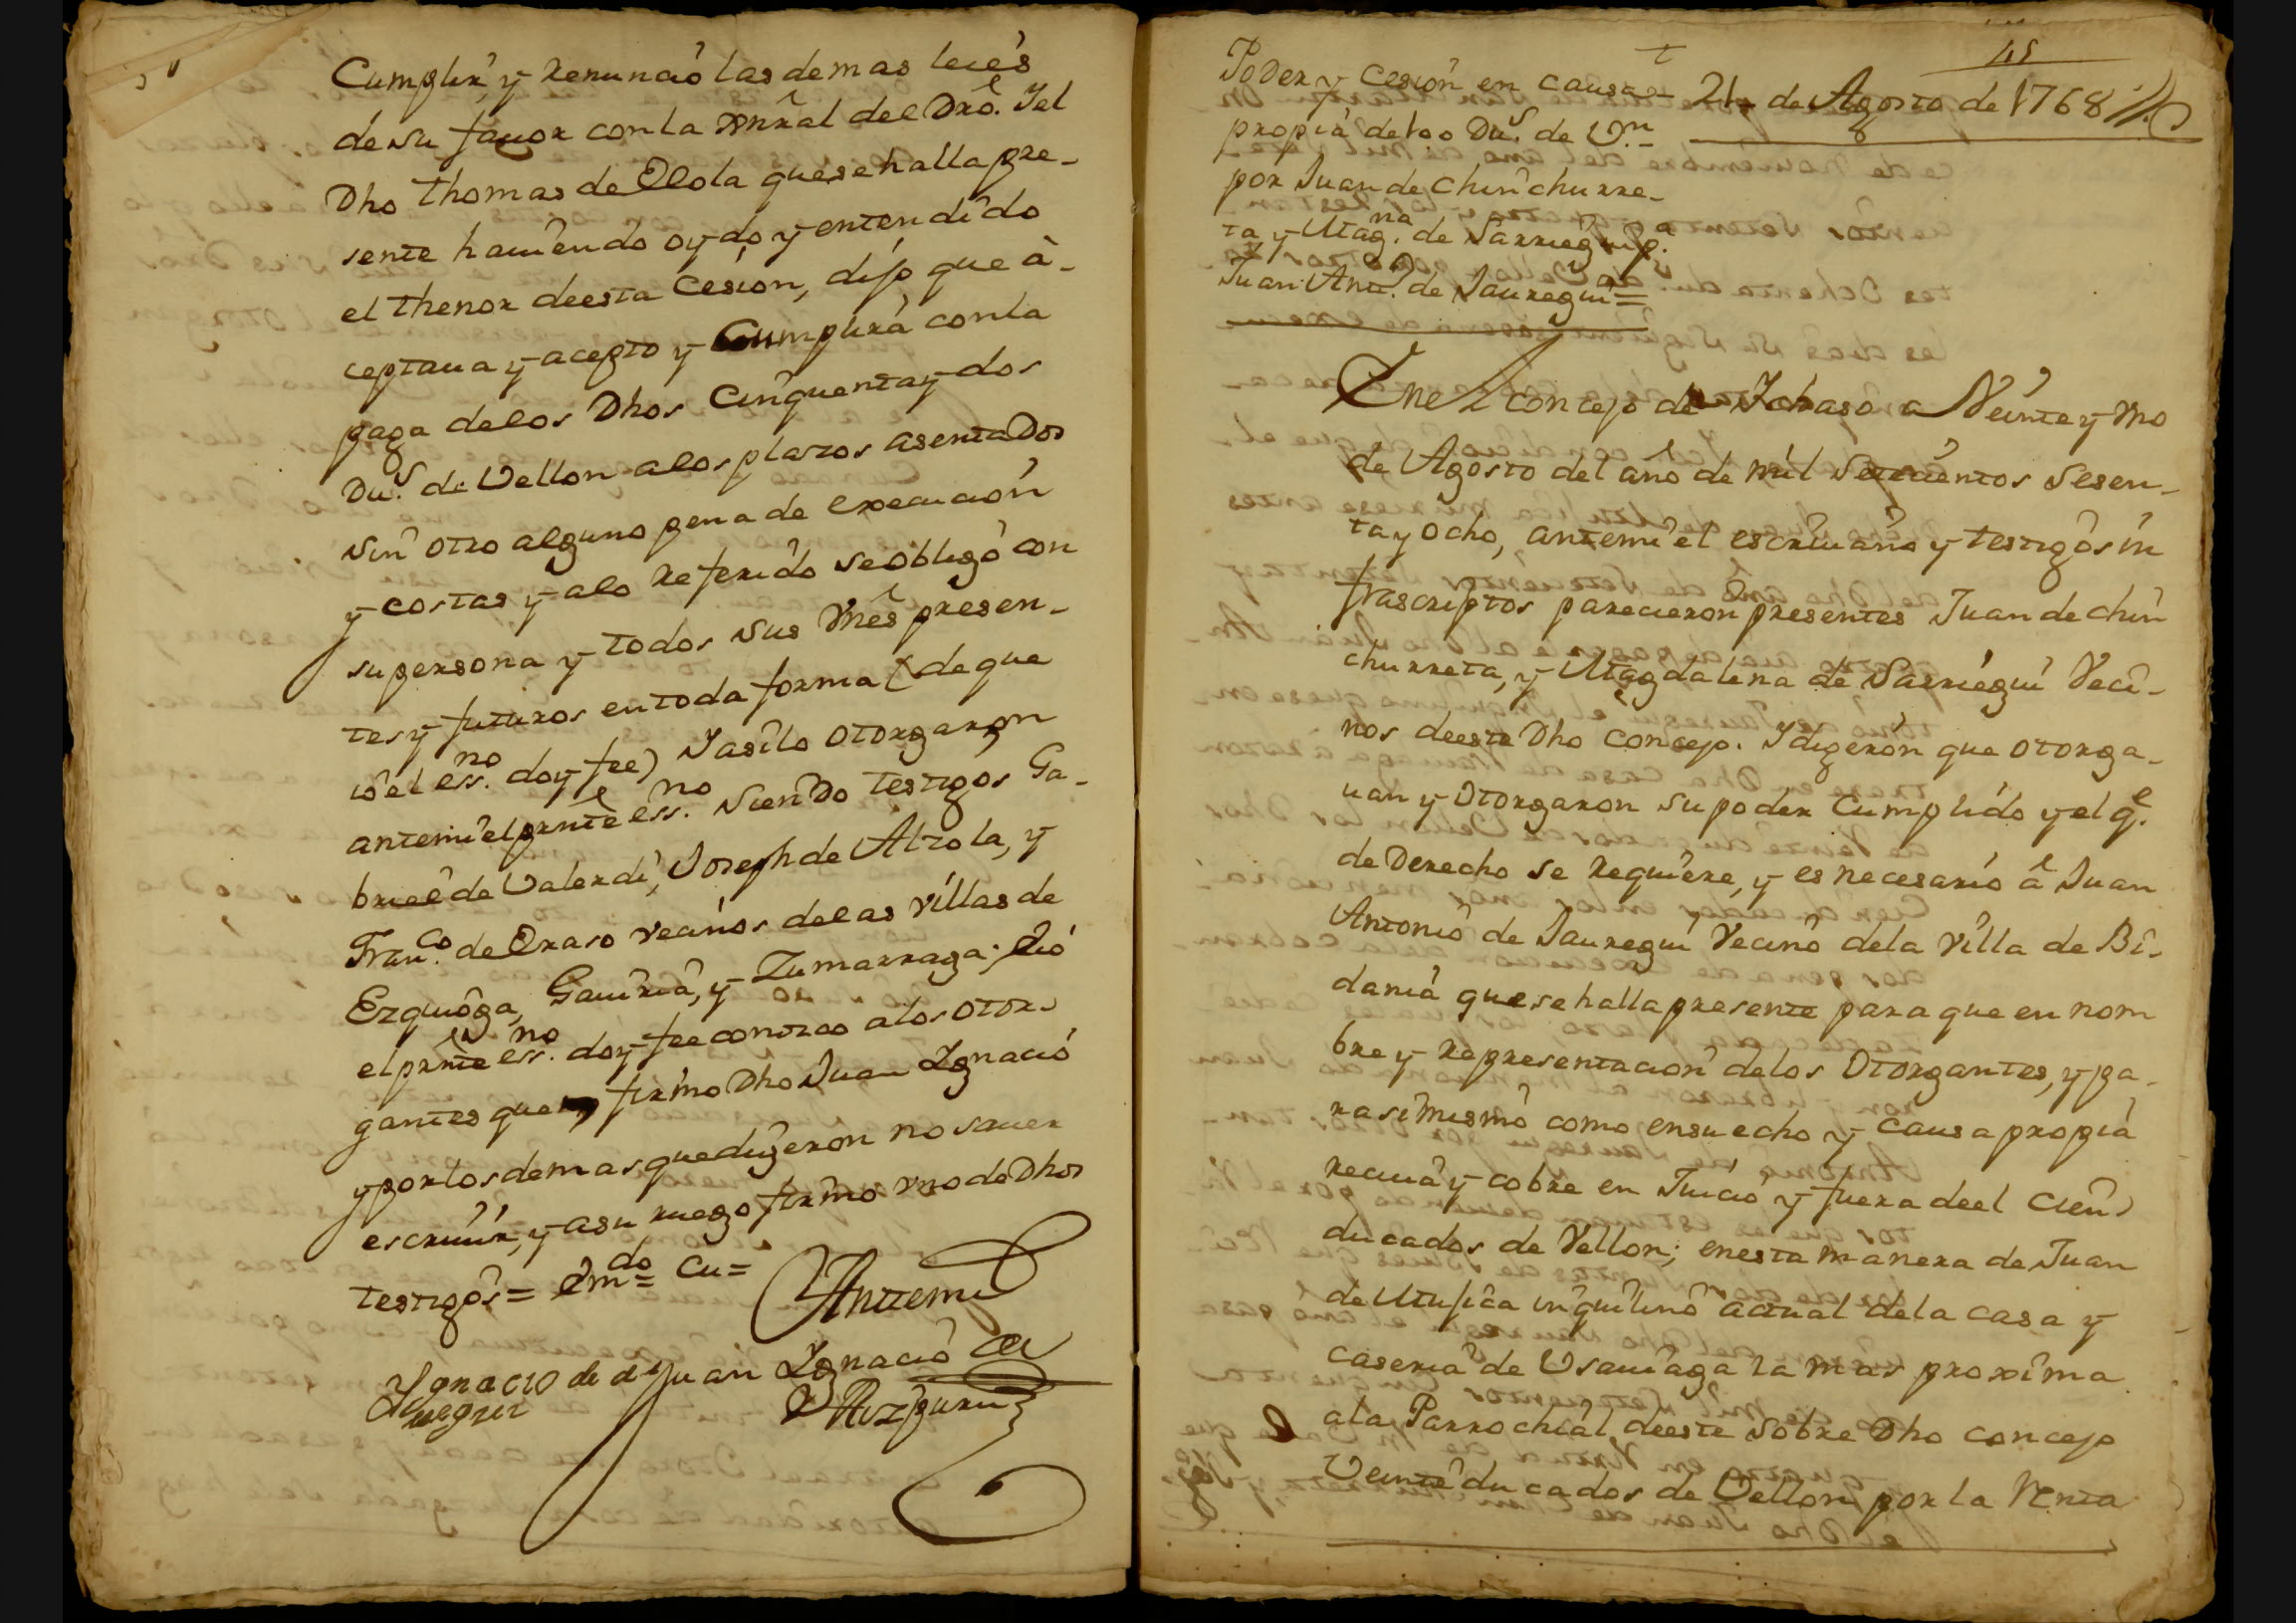 Cumplir, y renunció las demas leiês
de su favor con la xnrâl del Drô. Y el
Dho Thomas de Olola que se halla pre-
sente haviendo oydo y entendido
el thenor deesta Cesion, dijo que à-
ceptaua y acepto y Cumplirá con la
paga delos Dhos Cinquenta y dos
Du.s de Vellon alos plazos asentados
sin otro alguno pena de execucion
y costas y alo referido se obligó con
su persona y todos sus Vnês presen-
tes y futuros en toda forma (de que
ió el ess.no doy fee) Y asilo otorgaron
antemi el prntê ess.no siendo testigos Ga-
briel de Valerdi, Joseph de Alzola, y
Fran.co de Oraso vecinos delas villas de
Ezquioga, Gaviria, y Zumarraga; Ió
el prntê ess.no doy fee conozco alos otor-
gantes que firmo Dho Juan Ignacio
y por los demas que dijeron no sauer
escriuir, y asu ruego firmo vno de Dhos
testigos = Em.do = Cu =
Anttemi
Juan Ignacio
Ygnacio de
45
Poder y Cesion en causa
propia de 100 Du.s de V.n
por Juan de Chinchurre-
ta y Mag.na de Sarriegui p.a
Juan Ant.o de Jauregui =
21 de Agosto de 1768
Enel concejo de Ichaso a Veinte y vno
de Agosto del año de mil Setecientos Sesen-
ta y ocho, antemi el escriuano y testigos in
frascriptos parecieron presentes Juan de Chin
churreta, y Magdalena de Sarriegui Veci-
nos deeste Dho concejo. Y digeron que otorga-
uan y otorgaron su poder Cumplido y el q.e
de Derecho se requiere, y es necesario â Juan
Antonio de Jauregui Vecino dela Villa de Bi-
dania que se halla presente para que en nom
bre y representacion delos Otorgantes, y pa-
ra simismo como ensu echo y causa propia
reciua y cobre en Juicio y fuera deel Cien
ducados de Vellon; enesta manera de Juan
de Mujica inquilino actual dela casa y
caseria de Usauiaga la mas proxima
ala Parrochial deeste sobre Dho concejo
Veinte ducados de Vellon por la Renta